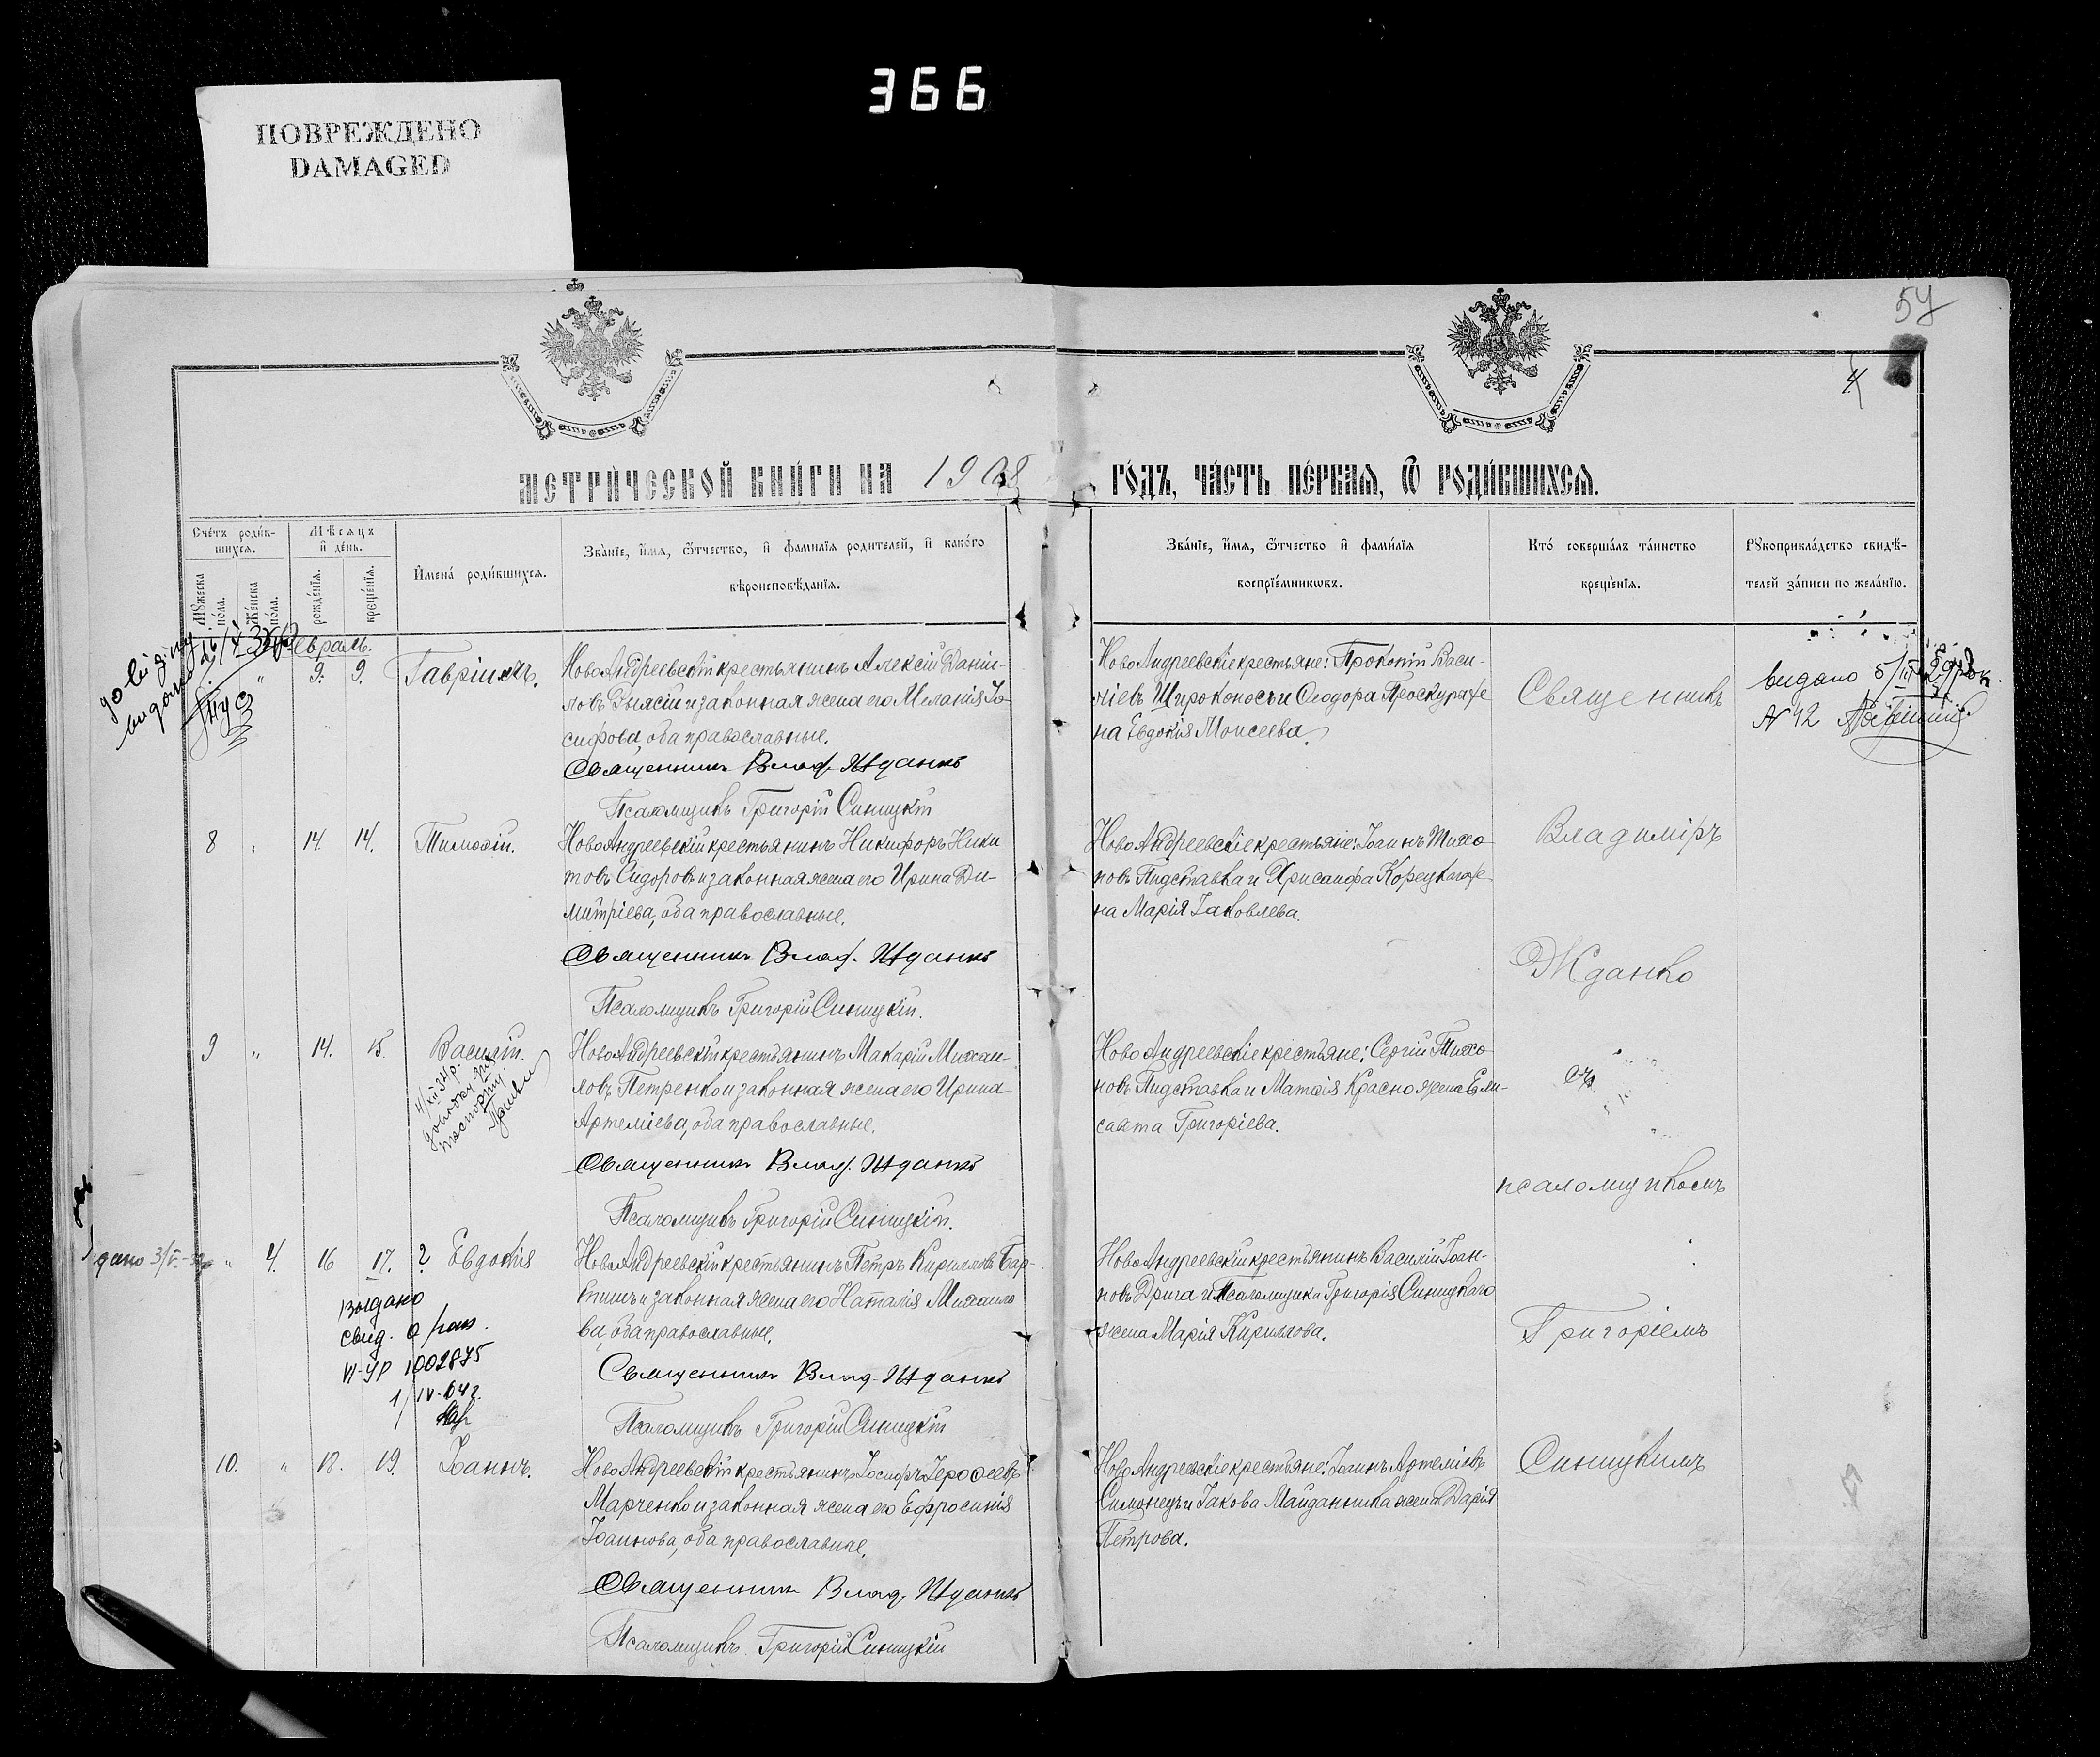 366
ПОВРЕЖДЕНО
DAMAGED
57
4
МЕТРИ́ЧЕСКОЙ КНИ́ГИ НА 1908 ГО́ДЪ, ЧА́СТЬ ПЕ́РВАЯ, Ѡ РОДИ́ВШИХСЯ.
Сче́тъ роди́в-
шихся.
Мѣсяцъ
и де́нь.
Мꙋжеска по́ла.
Же́нска по́ла.
рожде́нїя.
креще́нїя.
И҆мена́ роди́вшихся.
Зва́нїе, и҆́мя, ѻ҆́тчество, и҆ фами́лїя родителей, и҆ како́го
вѣроисповѣ́данїя.
Зва́нїе, и҆́мя, ѻ҆́тчество и҆ фами́лїя
воспрїе́мникѡвъ.
Кто́ соверша́лъ та́инство
креще́нїя.
Рꙋкоприкла́дство свидѣ́-
телей за́писи по жела́нїю.
Февраль.
" 9. 9. Гавріилъ.
НовоАндреевскій крестьянинъ Алексій Даніи-
ловъ и законная жена его Меланія Іо-
сифова, оба православные.
Священникъ Влад. Жданко
Псаломщикъ Григорій Синицкій
НовоАндреевскіе крестьяне: Прокопій Васи-
ліевъ Широконосъ и Ѳеодора Проскура же-
на Евдокія Моисеева.
Священникъ
видано 5/III
N 42
8 " 14. 14. Тимоѳій.
НовоАндреевскій крестьянинъ Никифоръ Ники
товъ Сидоровъ и законная жена его Ирина Ди-
митріева, оба православные.
Священникъ Влад. Жданко
Псаломщикъ Григорій Синицкій.
НовоАндреевскіе крестьяне: Іоаннъ Тихо-
новъ Пидставка и Хрисанфа Корецкаго же-
на Марія Іаковлева.
Владиміръ
Жданко
9 " 14. 15. Василій.
НовоАндреевскій крестьянинъ Макарій Михаи-
ловъ Петренко и законная жена его Ирина
Артеміева, оба православные.
Священникъ Влад. Жданко
Псаломщикъ Григорій Синицкій.
НовоАндреевскіе крестьяне: Сергій Тихо-
новъ Пидставка и Матѳія Красно жена Ели-
савета Григоріева.
съ
псаломщикомъ
" 4. 16 17. ? Евдокія
выдано
свид. о
VI-УР 1002875
НовоАндреевскій крестьянинъ Петръ Кирилловъ Бар-
и законная жена его Наталія Михаило
ва, оба православные.
Священникъ Влад. Жданко
Псаломщикъ Григорій Синицкій
НовоАндреевскій крестьянинъ Василій Іоан-
новъ Дрига и Псаломщика Григорія Синицкаго
жена Марія Кириллова.
Григоріемъ
10. " 18. 19. Іоаннъ.
НовоАндреевскій крестьянинъ Іосифъ Іероѳеевъ
Марченко и законная жена его Ефросинія
Іоаннова, оба православные.
Священникъ Влад. Жданко
Псаломщикъ Григорій Синицкій
НовоАндреевскіе крестьяне: Іоаннъ Артеміевъ
Симонецъ и Іакова Майданника жена Дарія
Петрова.
Синицкимъ